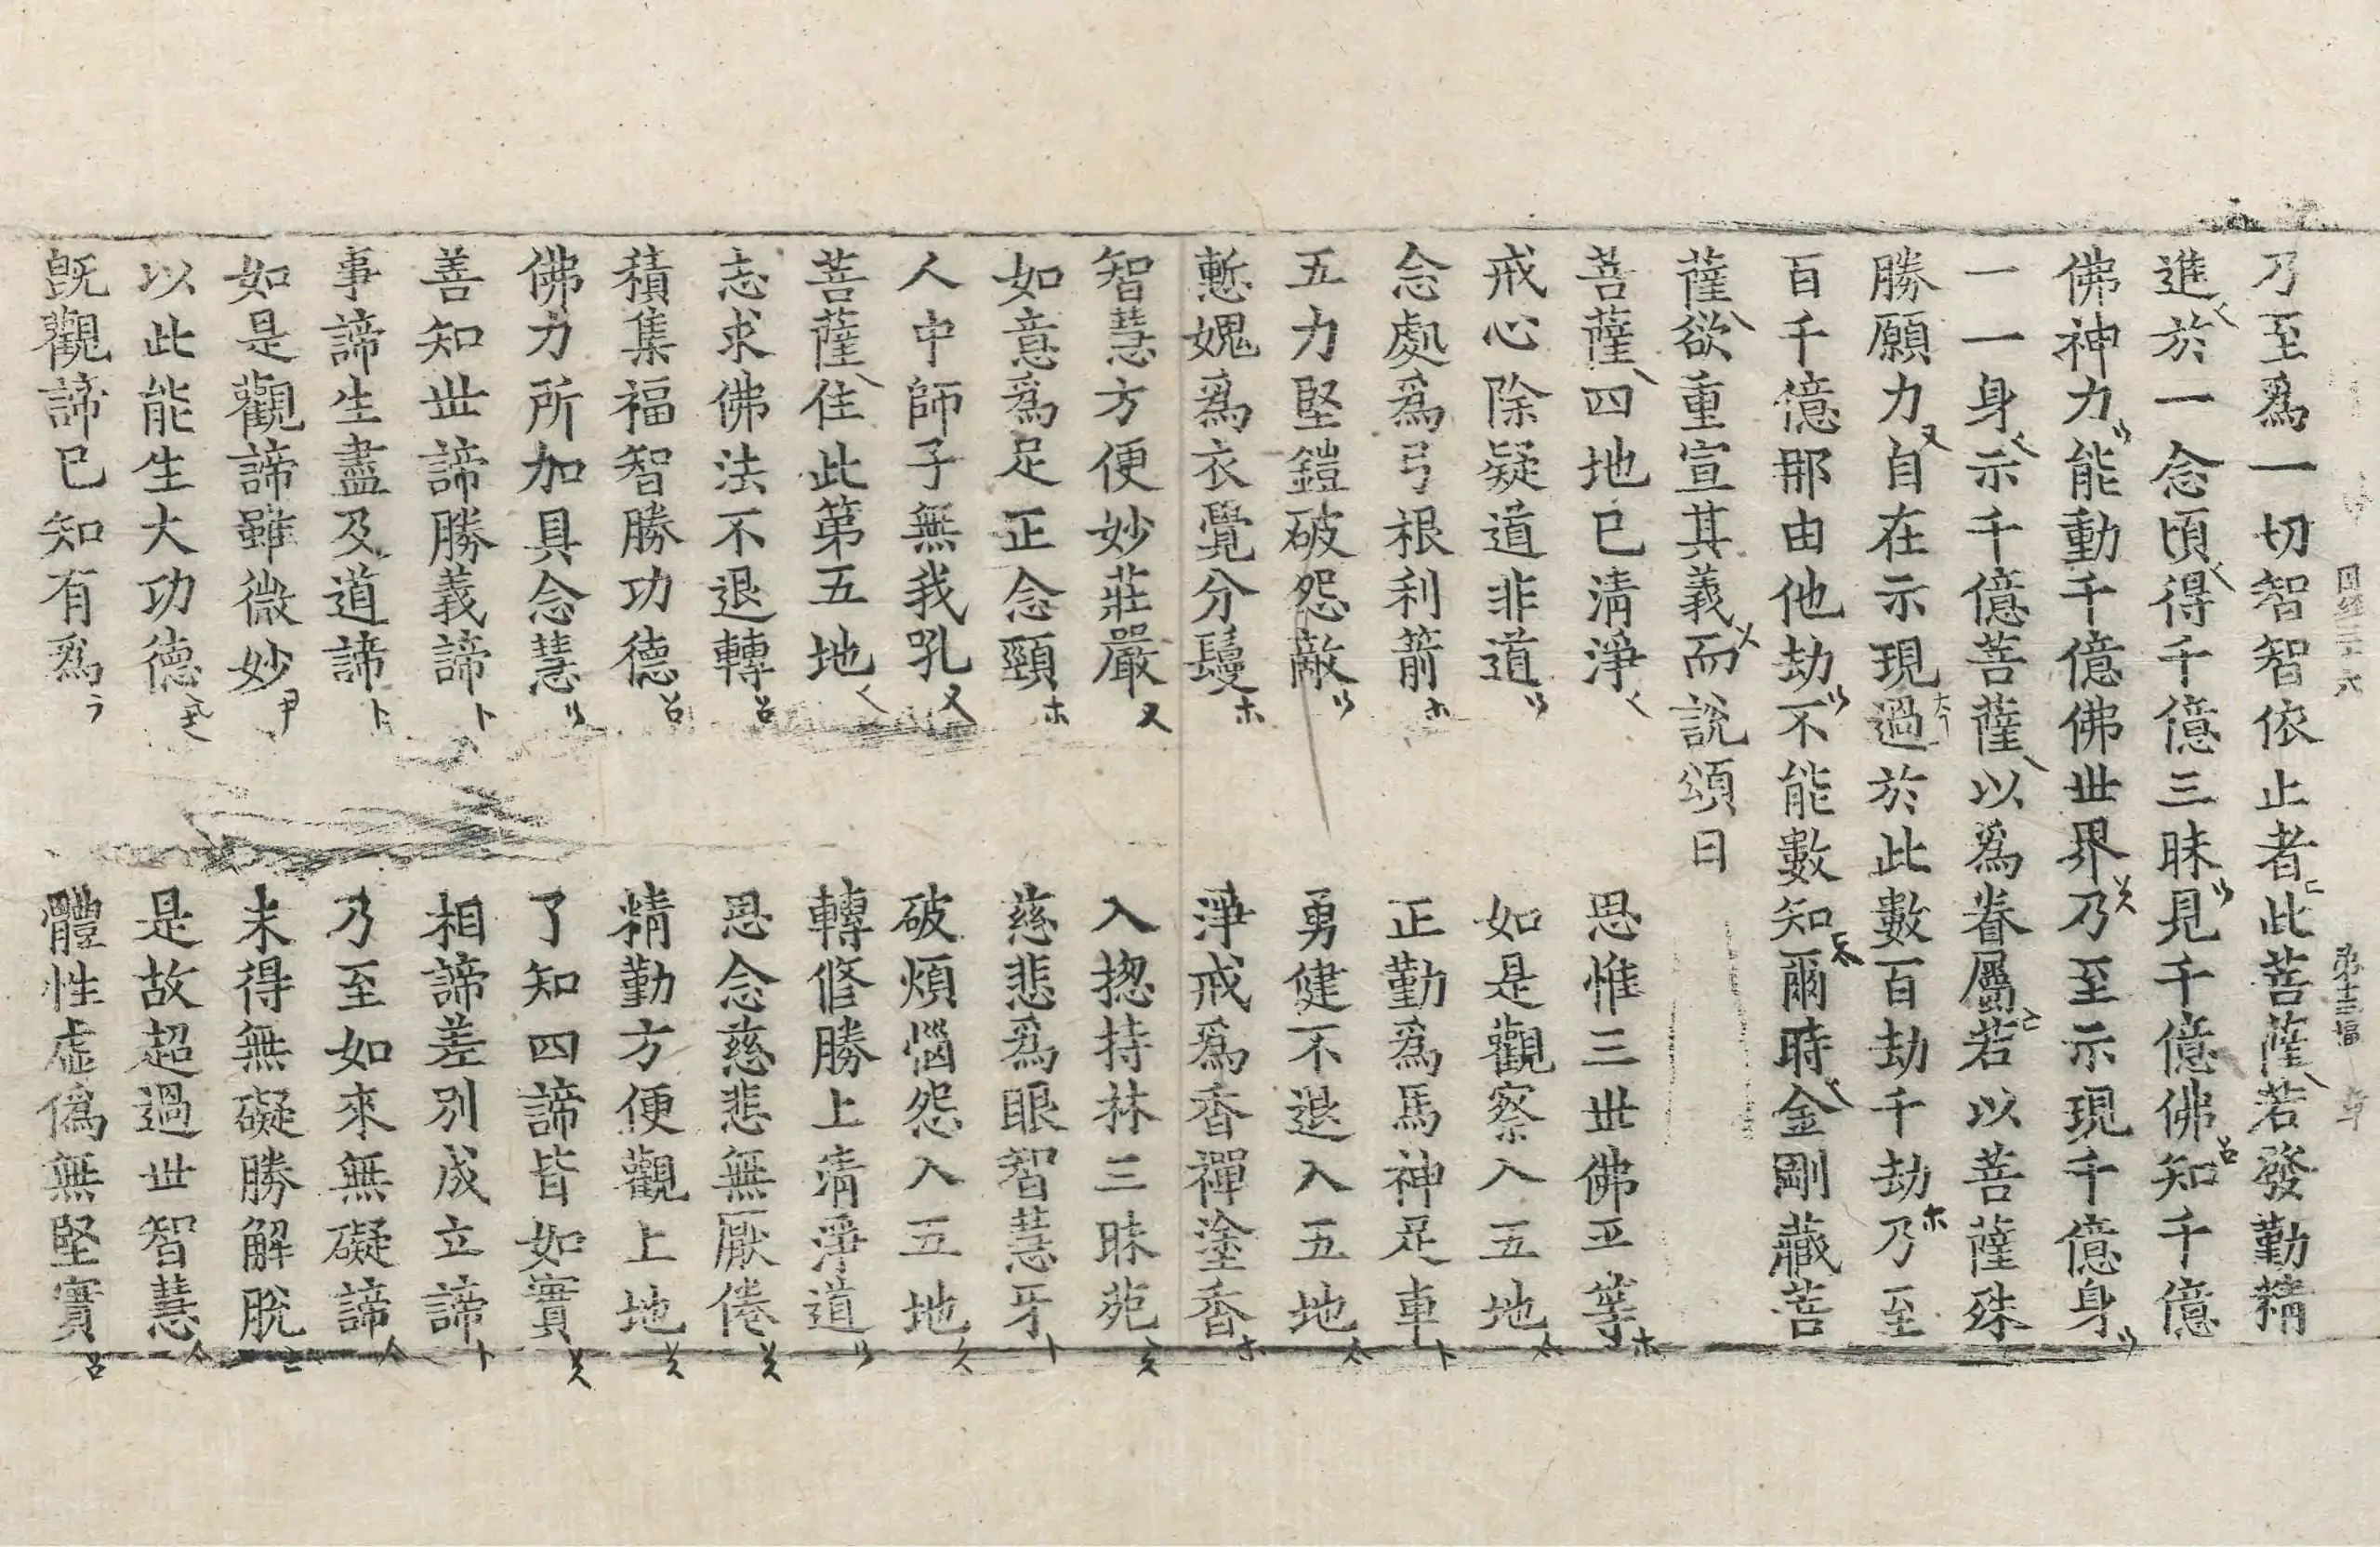 乃至爲一切智智依止者此菩薩若發勤精
進於一念頃得千億三昧見千億佛知千億
佛神力能動千億佛世界乃至示現千億身
一一身示千億菩薩以爲眷屬若以菩薩殊
勝願力自在示現過於此數百劫千劫乃至
百千億那由他劫不能數知爾時金剛藏菩
薩欲重宣其義而說頌曰
菩薩四地已淸淨 思惟三世佛平等
戒心除疑道非道 如是觀察入五地
念處爲弓根利箭 正勤爲馬神足車
五力堅鎧破怨敵 勇健不退入五地
慙媿爲衣覺分鬘 淨戒爲香禪塗香
智慧方便妙莊嚴 入揔持林三昧苑
如意爲足正念頸 慈悲爲眼智慧牙
人中師子無我吼 破煩惱怨入五地
菩薩住此第五地 轉修勝上淸淨道
志求佛法不退轉 思念慈悲無厭倦
積集福智勝功德 精勤方便觀上地
佛力所加具念慧 了知四諦皆如實
善知世諦勝義諦 相諦差別成立諦
事諦生盡及道諦 乃至如來無礙諦
如是觀諦雖微妙 未得無礙勝解脫
以此能生大功德 是故超過世智慧
旣觀諦已知有爲 體性虛僞無堅實